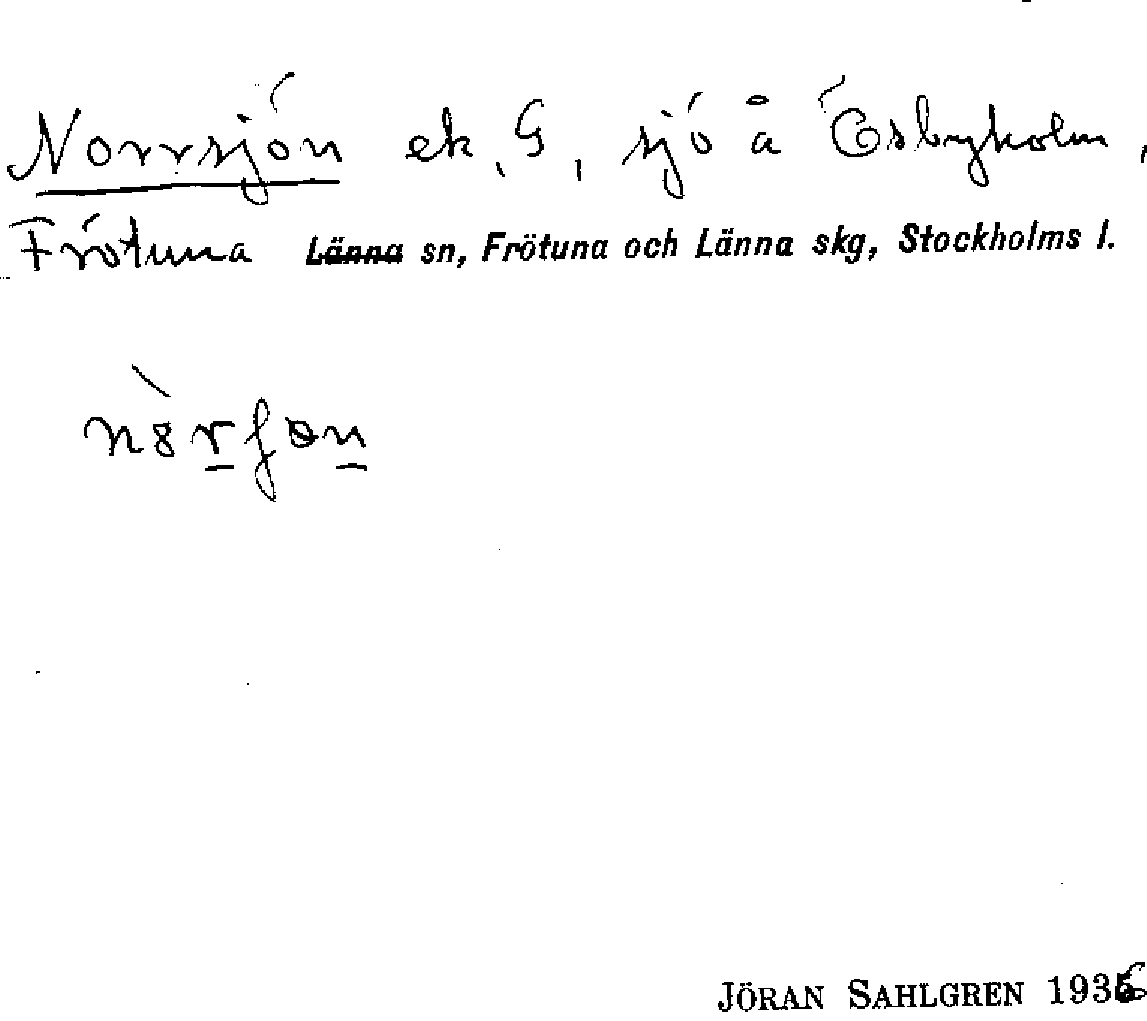 Norrsjön ek, G, sjö å Ösbyholm,
Frötuna Länna sn, Frötuna och Länna skg, Stockholms l.
JÖRAN SAHLGREN 1936